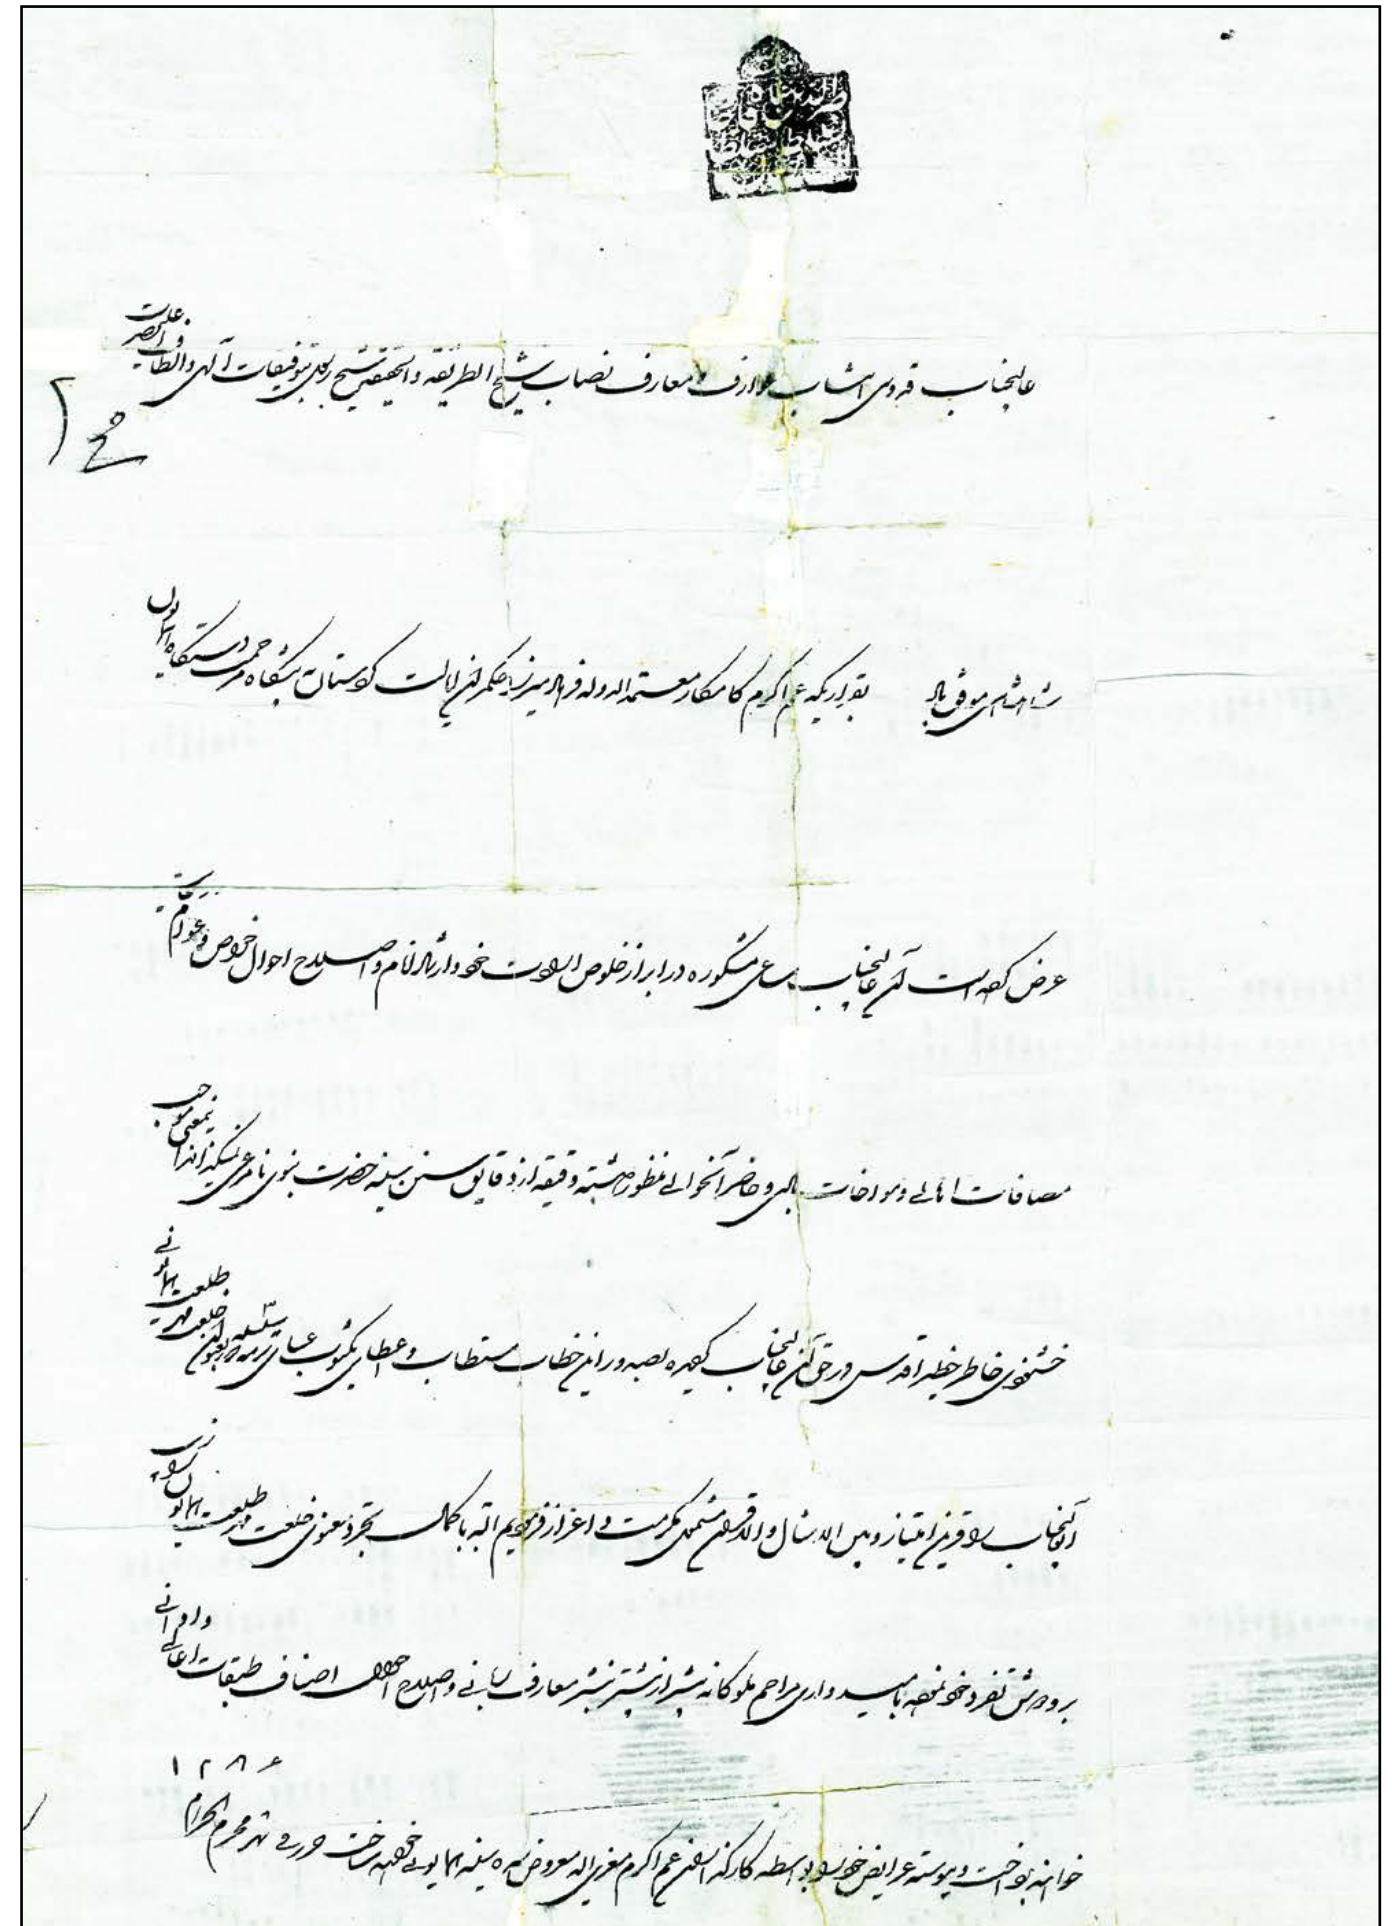 عالیجناب قدوسی انتساب عوارف و معارف نصاب شیخ الطریقه و الحقیقه شیخ بتوفیقات آلهی و الطاف اعلیحضرت
شاهنشاهی موفق باد بقراریکه عم اکرم کامکار معتمدالدوله فرهاد میرزا حکمران ایالت کردستان به پیشگاه مرحمت دستگاه همایون
عرض کرده است آن عالیجناب مساعی مشکوره در ابراز خلوص ارادت خود و ارشاد انام و اصلاح احوال خواص و عوام
مصافات اهالی و مواخات بادی و حاضر آنحوالی منظور داشته دقیقه از دقایق سنن سنیه حضرت نبوی نامرعی نمیگذارند اینمعنی موجب
خشنودی خاطر خطیر اقدس در حق آن عالیجناب گردیده بصدور این خطاب مستطاب و اعطای یکثوب عبای ترمه خلعت مهر طلعت همایونی
آنجناب را قرین امتیاز و بین الامثال و الاقران مشمول مکرمت و اعزاز فرمودیم البته با کمال تجرد معنوی خلعت مهر طلعت همایون را زیب
بر و دوش تفرد خود نموده بامیدواری مراحم ملوکانه بیشتر از پیشتر بنشر معارف ربانی و اصلاح احوال اصناف طبقات اعالی و ادانی
خواهند پرداخت و پیوسته عرایض خود را بواسطه کارگذاران عم اکرم معزی الیه معروض سده سنیه همایونی خواهد ساخت حرر فی شهر محرم الحرام
۱۲۸۶